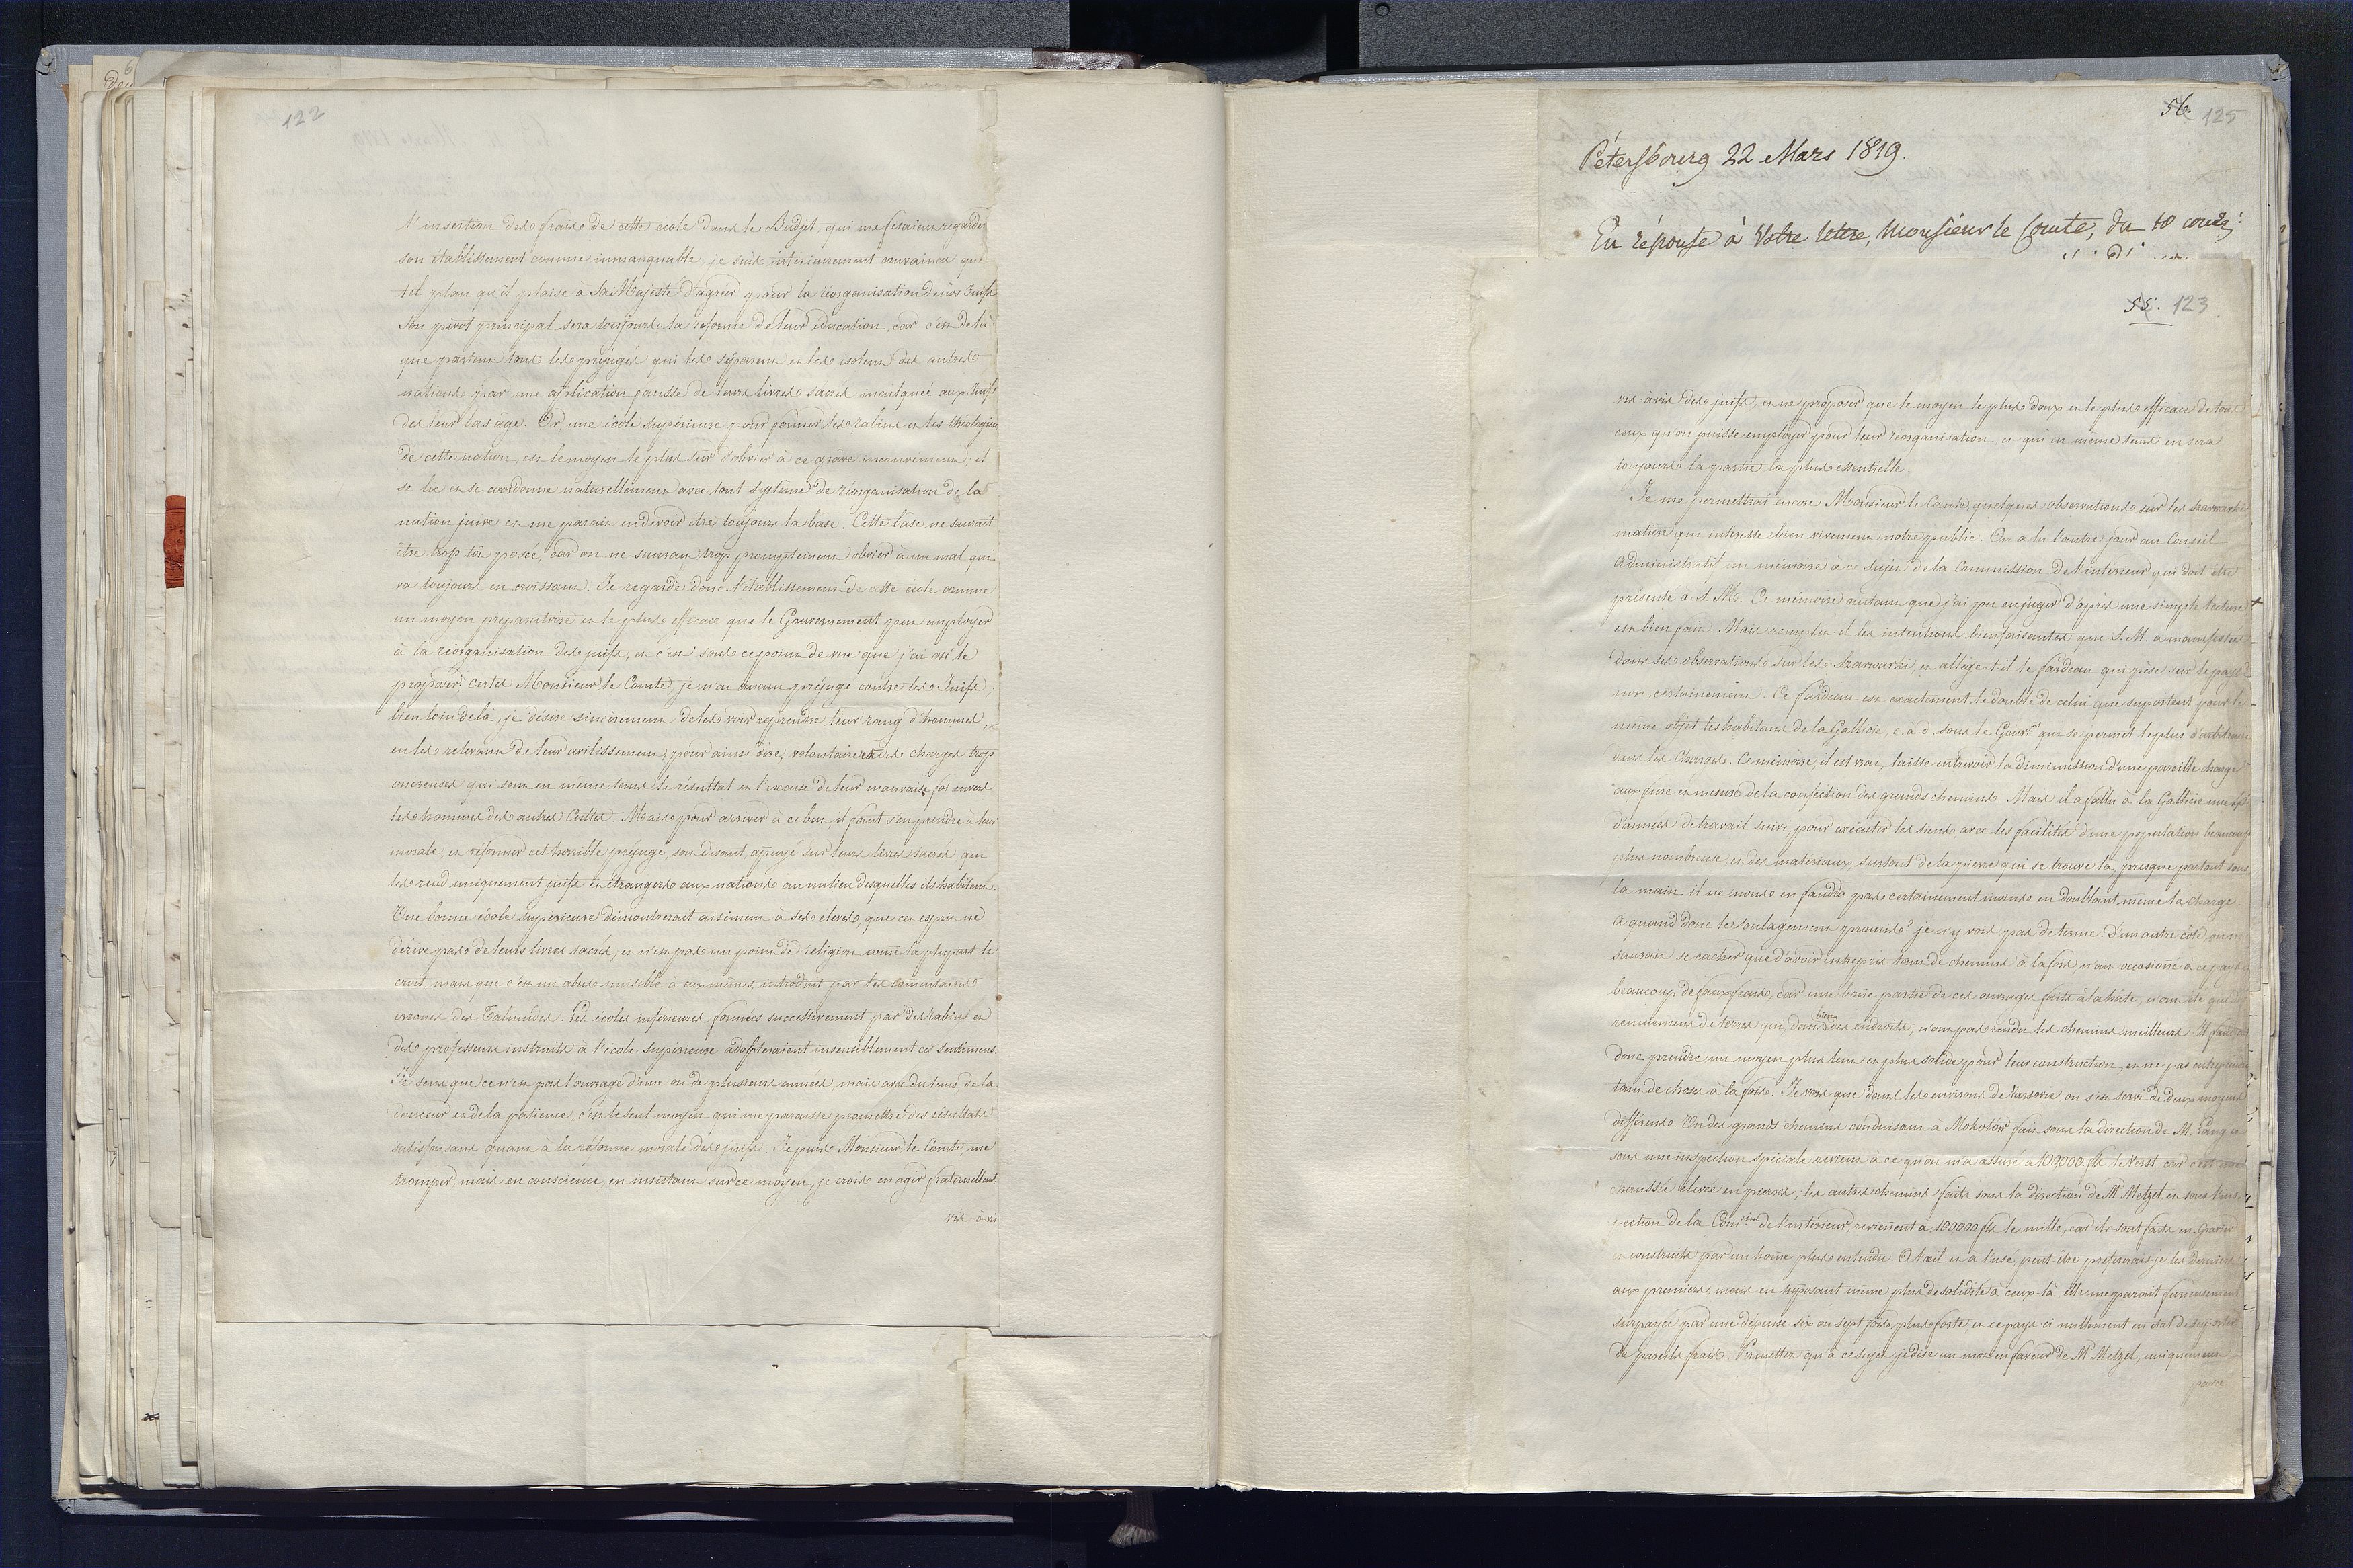 122
l'insertion des fraix de cette ecole dans le Budjet, qui me fesaient regarder
son établissement comme immanquable je suis intérieurement convaincu que
tel plan qu'il plaise à Sa Majesté d'agréer pour la réorganisation de nos Juifs
son pivot principal sera toujours la reforme de leur éducation, car c'est de là
que partent tous les préjugés qui les séparent et les isolent des autres
nations par une application fausse de leurs livres sacrés inculquée aux Juifs
des leur bas âge. Or, une école supérieure pour former les rabins et les théologiens
de cette nation, est le moyen le plus sûr d'obvier à ce grâve inconvénient; il
se lie et se coordonne naturellement avec tout système de réorganisation de la
nation juive et me parait en devoir etre toujours la base. Cette base ne saurait
être trop tôt posée, car on ne saurait trop promptement obvier à un mal qui
va toujours en croissant. Je regarde donc l'établissement de cette école comme
un moyen préparatoire et le plus efficace que le Gouvernement peut employer
à la réorganisation des juifs, et c'est sous ce point de vue que j'ai osé le
proposer. Certes Monsieur le Comte, je n'ai aucun préjugé contre les Juifs,
bien loin delà, je désire sincèrement de les voir reprendre leur rang d'hommes,
en les relevant de leur avilissement, pour ainsi dire, volontaire et des charges trop
onéreuses qui sont en même tems le résultat et l'excuse de leur mauvaise foi envers
les hommes des autres Cultes. Mais pour arriver à ce but, il faut s'en prendre à leur
morale, et réformer cet horrible préjugé, soi disant, appuyé sur leurs livres sacrés qui
les rend uniquement juifs et étrangers aux nations au milieu desquelles ils habitent.
Une bonne école supérieure démontrerait aisément à ses eleves que cet esprit ne
dérive pas de leurs livres sacrés, et n'est pas un point de religion comme la plupart le
croit, mais que c'est un abus nuisible à eux mêmes, introduit par les comentaires
erronés des Talmudes. Les écoles inférieures formées successivement par des rabins et
des professeurs instruits à l'école supérieure adopteraient insensiblement ces sentimens.
Je sens que ce n'est pas l'ouvrage d'une ou de plusieurs années, mais avec du tems de la
douceur et de la patience, c'est le seul moyen qui me paraisse promettre des résultats
satisfaisans quant à la réforme morale des juifs. Je puis Monsieur le Comte, me
tromper, mais en conscience, en insistant sur ce moyen, je crois en agir fraternellemt
vis-à-vis
56. 125
Pétersbourg 22 Mars 1819.
En réponse à Votre lettre, Monsieur le Comte, du 10 cour:
55. 123
vis-à-vis des juifs, et ne proposer que le moyen le plus doux et le plus efficace de tous
ceux qu'on puisse employer pour leur réorganisation et qui en même tems en sera
toujours la partie la plus essentielle.
Je me permettrai encore Monsieur le Comte, quelques observations sur les szarwarki
matière qui interesse bien vivement notre public. On a lu l'autre jour au Conseil
Administratif un mémoire à ce sujet de la Commission de l'intérieur qui doit être
présenté à S. M. Ce mémoire autant que j'ai pu en juger d'après une simple lecture
est bien fait. Mais remplit-il les intentions bienfaisantes que S. M. a manifestées
dans ses observations sur les szarwarki, et allège-t-il le fardeau qui pèse sur le pays?
non, certainement. Ce fardeau est exactement le double de celui que supportent pour le
meme objet les habitans de la Gallicie, c. a. d. sous le Gouvt qui se permet le plus d'arbitraire
dans les charges. Ce mémoire, il est vrai, laisse entrevoir la diminussion d'une pareille charge
au fur et mesure de la confection des grands chemins. Mais il a fallu à la Gallicie
d'années de travail suivi, pour exécuter les siens avec les facilités d'une population beaucoup
plus nombreuse et des matériaux, surtout de la pierre qui se trouve là, presque partout sous
la main. il ne nous en faudra pas certainement moins en doublant même la charge.
A quand donc le soulagement promis? je n'y vois pas de terme. D'un autre côté on ne
saurait se cacher que d'avoir entrepris tant de chemins à la fois n'ait occasionné à ce pays
beaucoup de faux fraix, car une bone partie de ces ouvrages faits à la hâte, n'ont été que des
remuemens de terres qui, dans bien des endroits, n'ont pas rendu les chemins meilleurs. Il faudrait
donc prendre un moyen plus lent et plus solide pour leur construction, et ne pas entreprendre
tant de choses à la fois. Je vois que dans les environs de Varsovie on s'est servi de deux moyens
différens. Un des grands chemins conduisant à Mokotow fait sous la direction de M. Lang et
sous une inspection spéciale revient à ce qu'on m'a assuré a 100,000. fl. le Verst, car c'est une
chaussée élevée en pierres; les autres chemins faits sous la direction de Mr Metzel, et sous l'ins-
pection de la Comion de l'intérieur, reviennent à 100000 fls le mille, car ils sont faits en gravier
et construits par un home plus entendu. A l'œil et à l'usé, peut-être préfererais-je les derniers
aux premiers, mais en supposant même plus de solidité à ceux-là elle me parait furieusement
surpayée par une dépense six ou sept fois plus forte, et ce pays-ci nullement en état de supporter
de pareils fraix. Permettez qu'à ce sujet je dise un mot en faveur de Mr Metzel, uniquement
parce